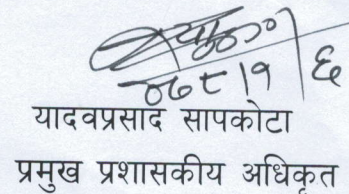 ०७८।१।६
यादवप्रसाद सापकोटा
प्रमुख प्रशासकीय अधिकृत